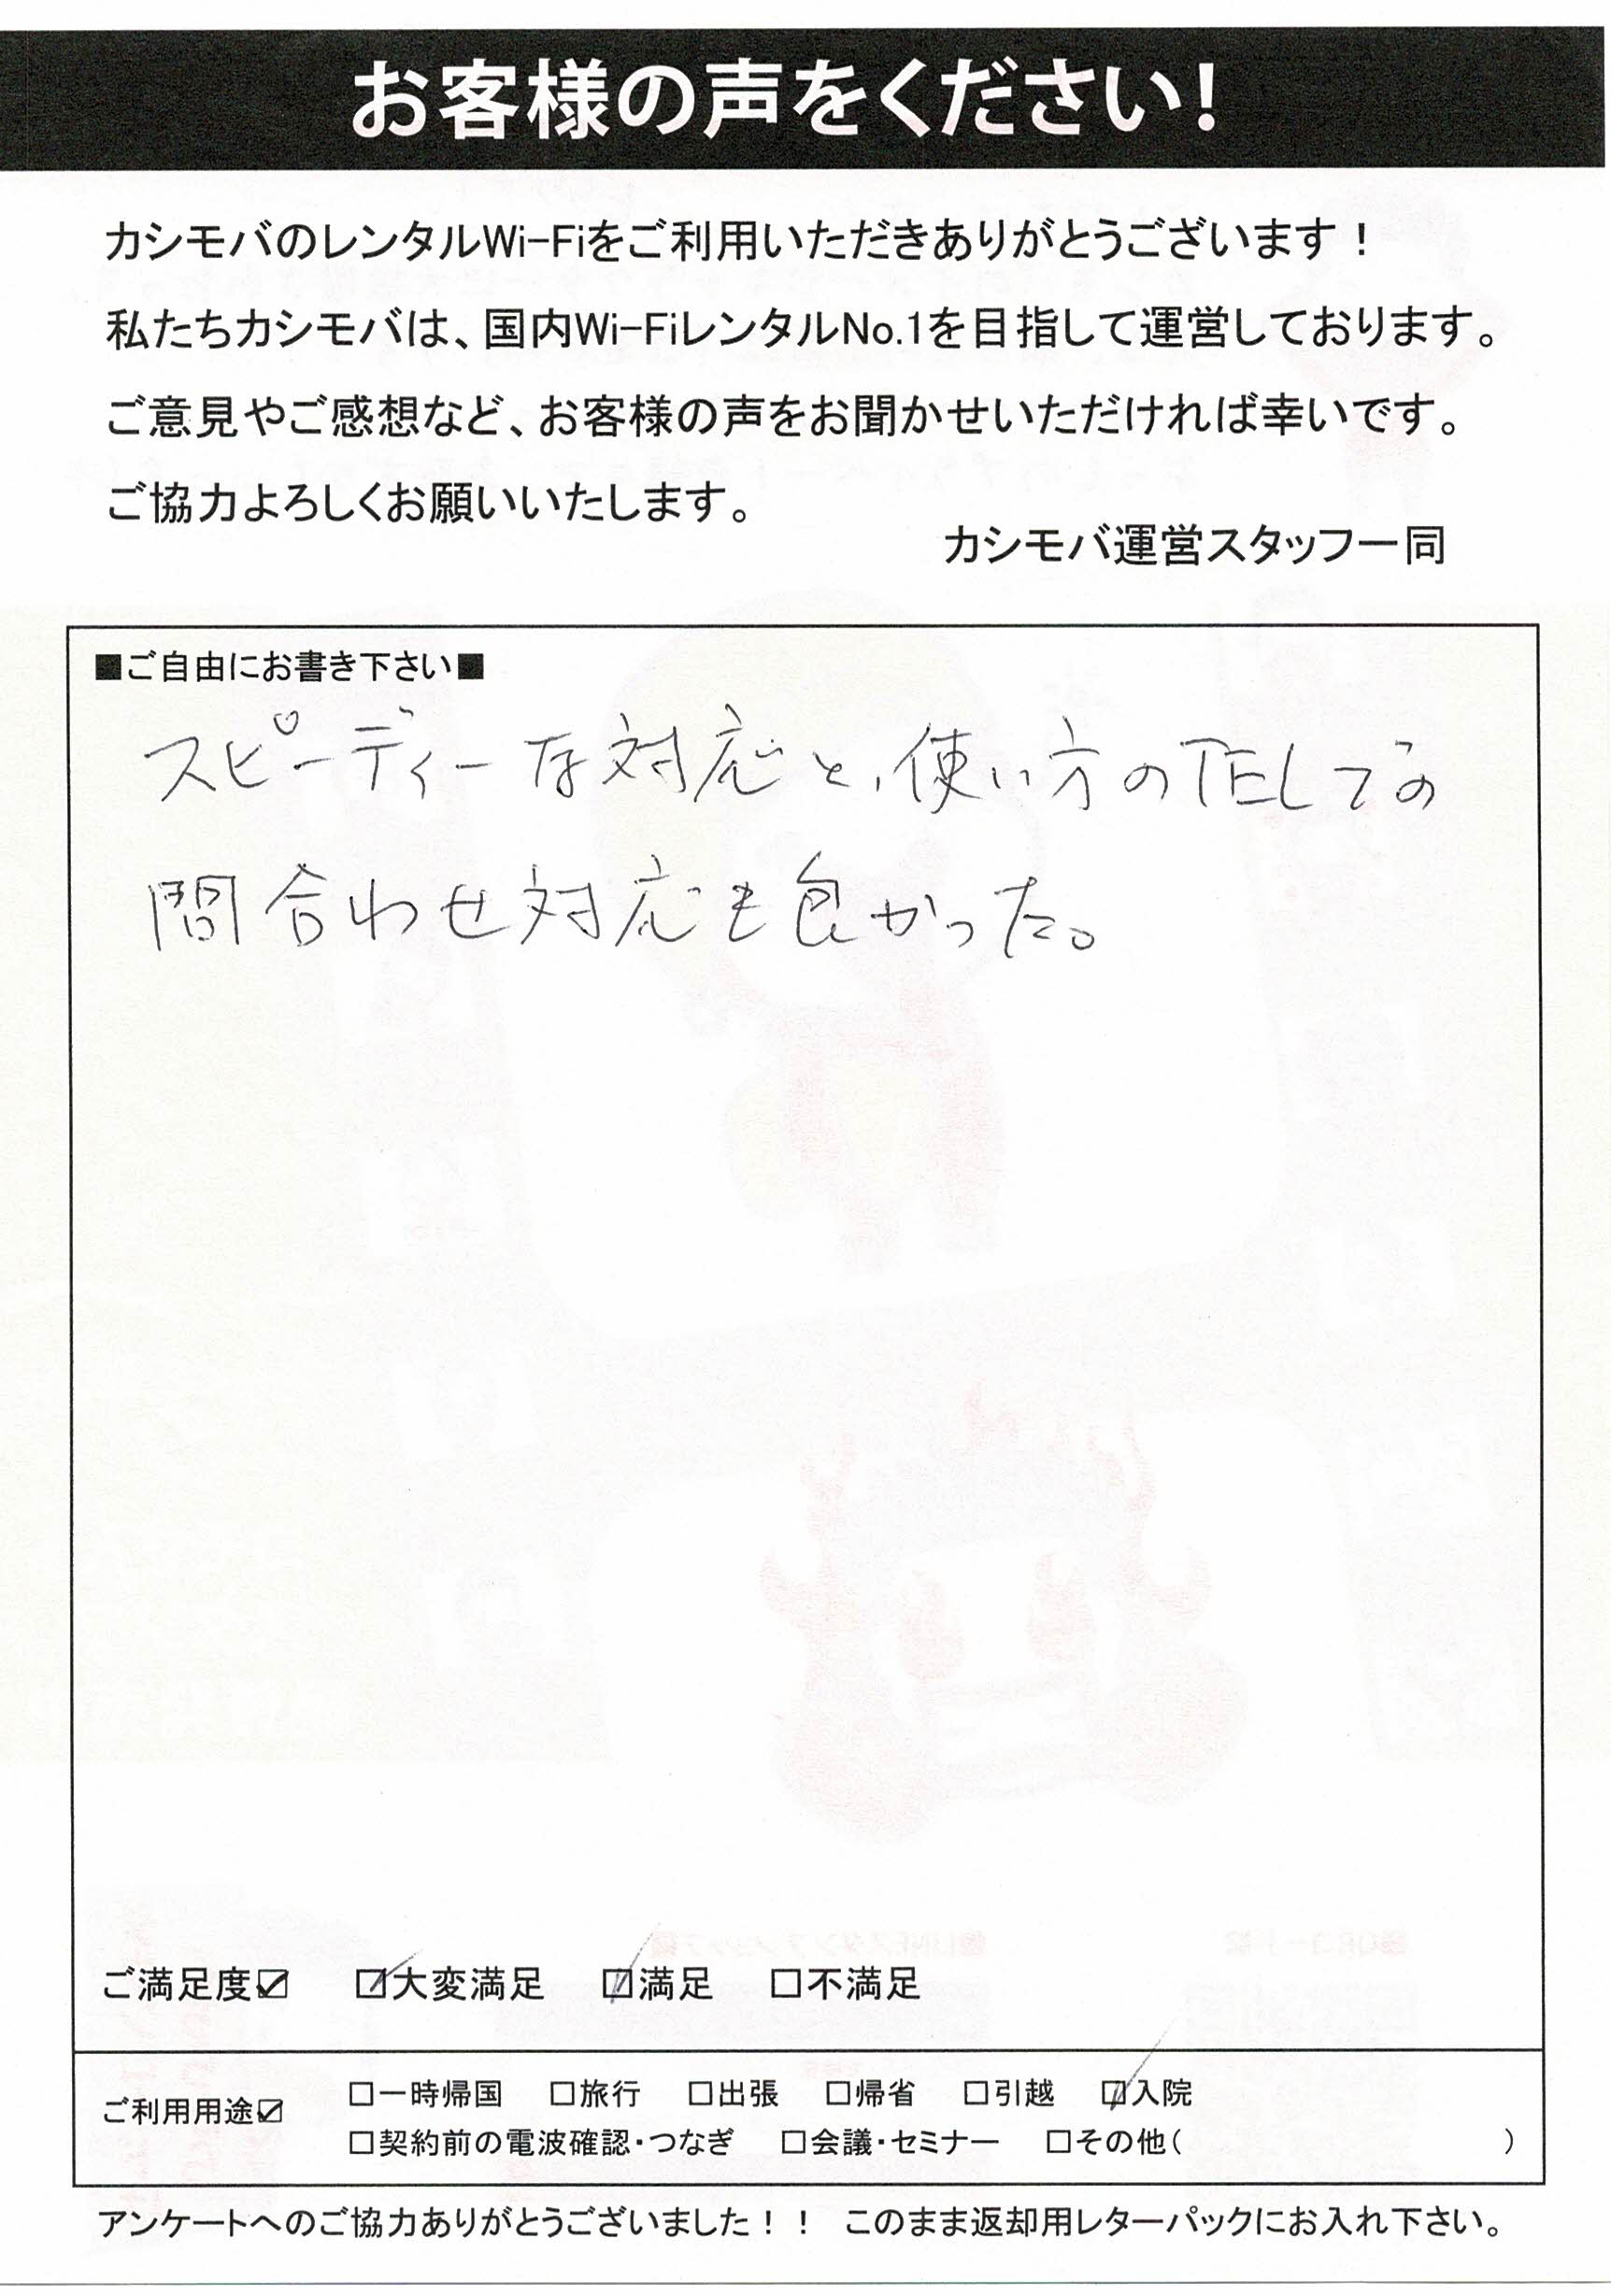 お客様の声をください!
カシモバのレンタルWi-Fiをご利用いただきありがとうございます！
私たちカシモバは、国内Wi-FiレンタルNo.1を目指して運営しております。
ご意見やご感想など、お客様の声をお聞かせいただければ幸いです。
ご協力よろしくお願いいたします。
カシモバ運営スタッフ一同
■ご自由にお書き下さい■
スピーディーな対応と、使い方のTELでの
問合わせ対応も良かった。
ご満足度☑ ☑大変満足 ☑満足 □不満足
ご利用用途☑ □一時帰国 □旅行 □出張 □帰省 □引越 ☑入院
□契約前の電波確認・つなぎ □会議・セミナー □その他( )
アンケートへのご協力ありがとうございました！！ このまま返却用レターパックにお入れ下さい。